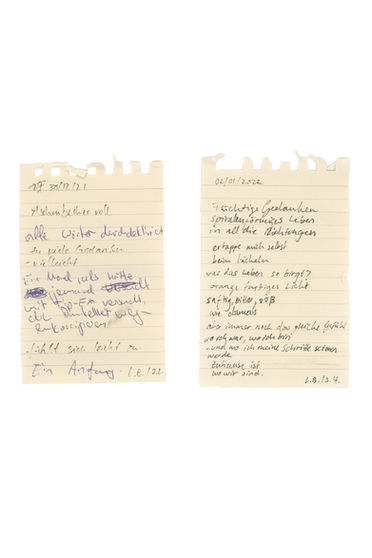 30/12/21
Aschenbecher voll
alle Wörter durchdekliniert
zu viele Gedanken
- vielleicht
Ein Mord, als hätte
jemand
mit Tip-Ex versucht,
die Dunkelheit weg-
zukorrigieren
fühlt sich leicht an
Ein Anfang. L.B./21.
02/01/2022
Flüchtige Gedanken
spiralenförmiges Leben
in all die Richtungen
ertappe mich selbst
beim Lächeln
was das Leben so birgt?
orange farbiges Licht
saftig, bitter, süß
wie damals
aber immer noch das gleiche Gefühl
wo ich war, wo ich bin
- und wo ich meine Schritte setzen
werde
Zuhause ist
wo wir sind.
L.B./